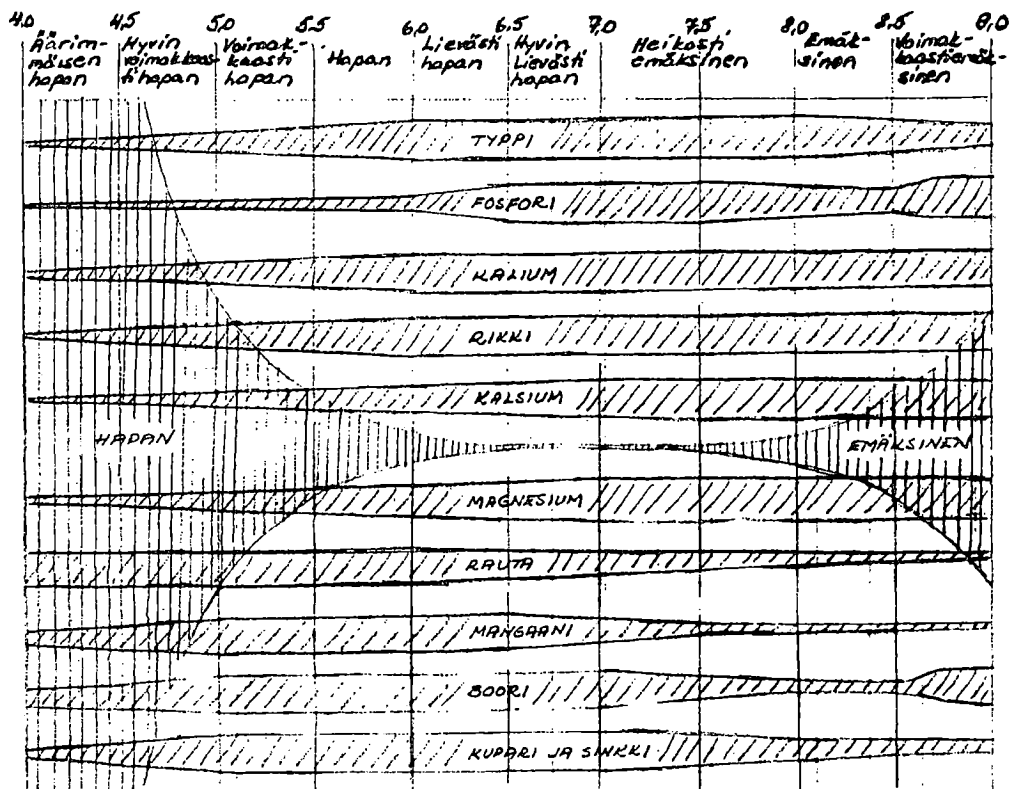 4,0 4,5 5,0 5,5 6,0 6,5 7,0 7,5 8,0 8,5 9,0
Äärim-
mäisen
hapan
Hyvin
voimakkaas-
ti hapan
Voimak-
kaasti
hapan
Hapan
Lievästi
hapan
Hyvin
Lievästi
hapan
Heikosti
emäksinen
Emäk-
sinen
Voimak-
kaastiemäk-
sinen
TYPPI
FOSFORI
KALIUM
RIKKI
KALSIUM
HAPAN
EMÄKSINEN
MAGNESIUM
RAUTA
MANGAANI
BOORI
KUPARI JA SINKKI